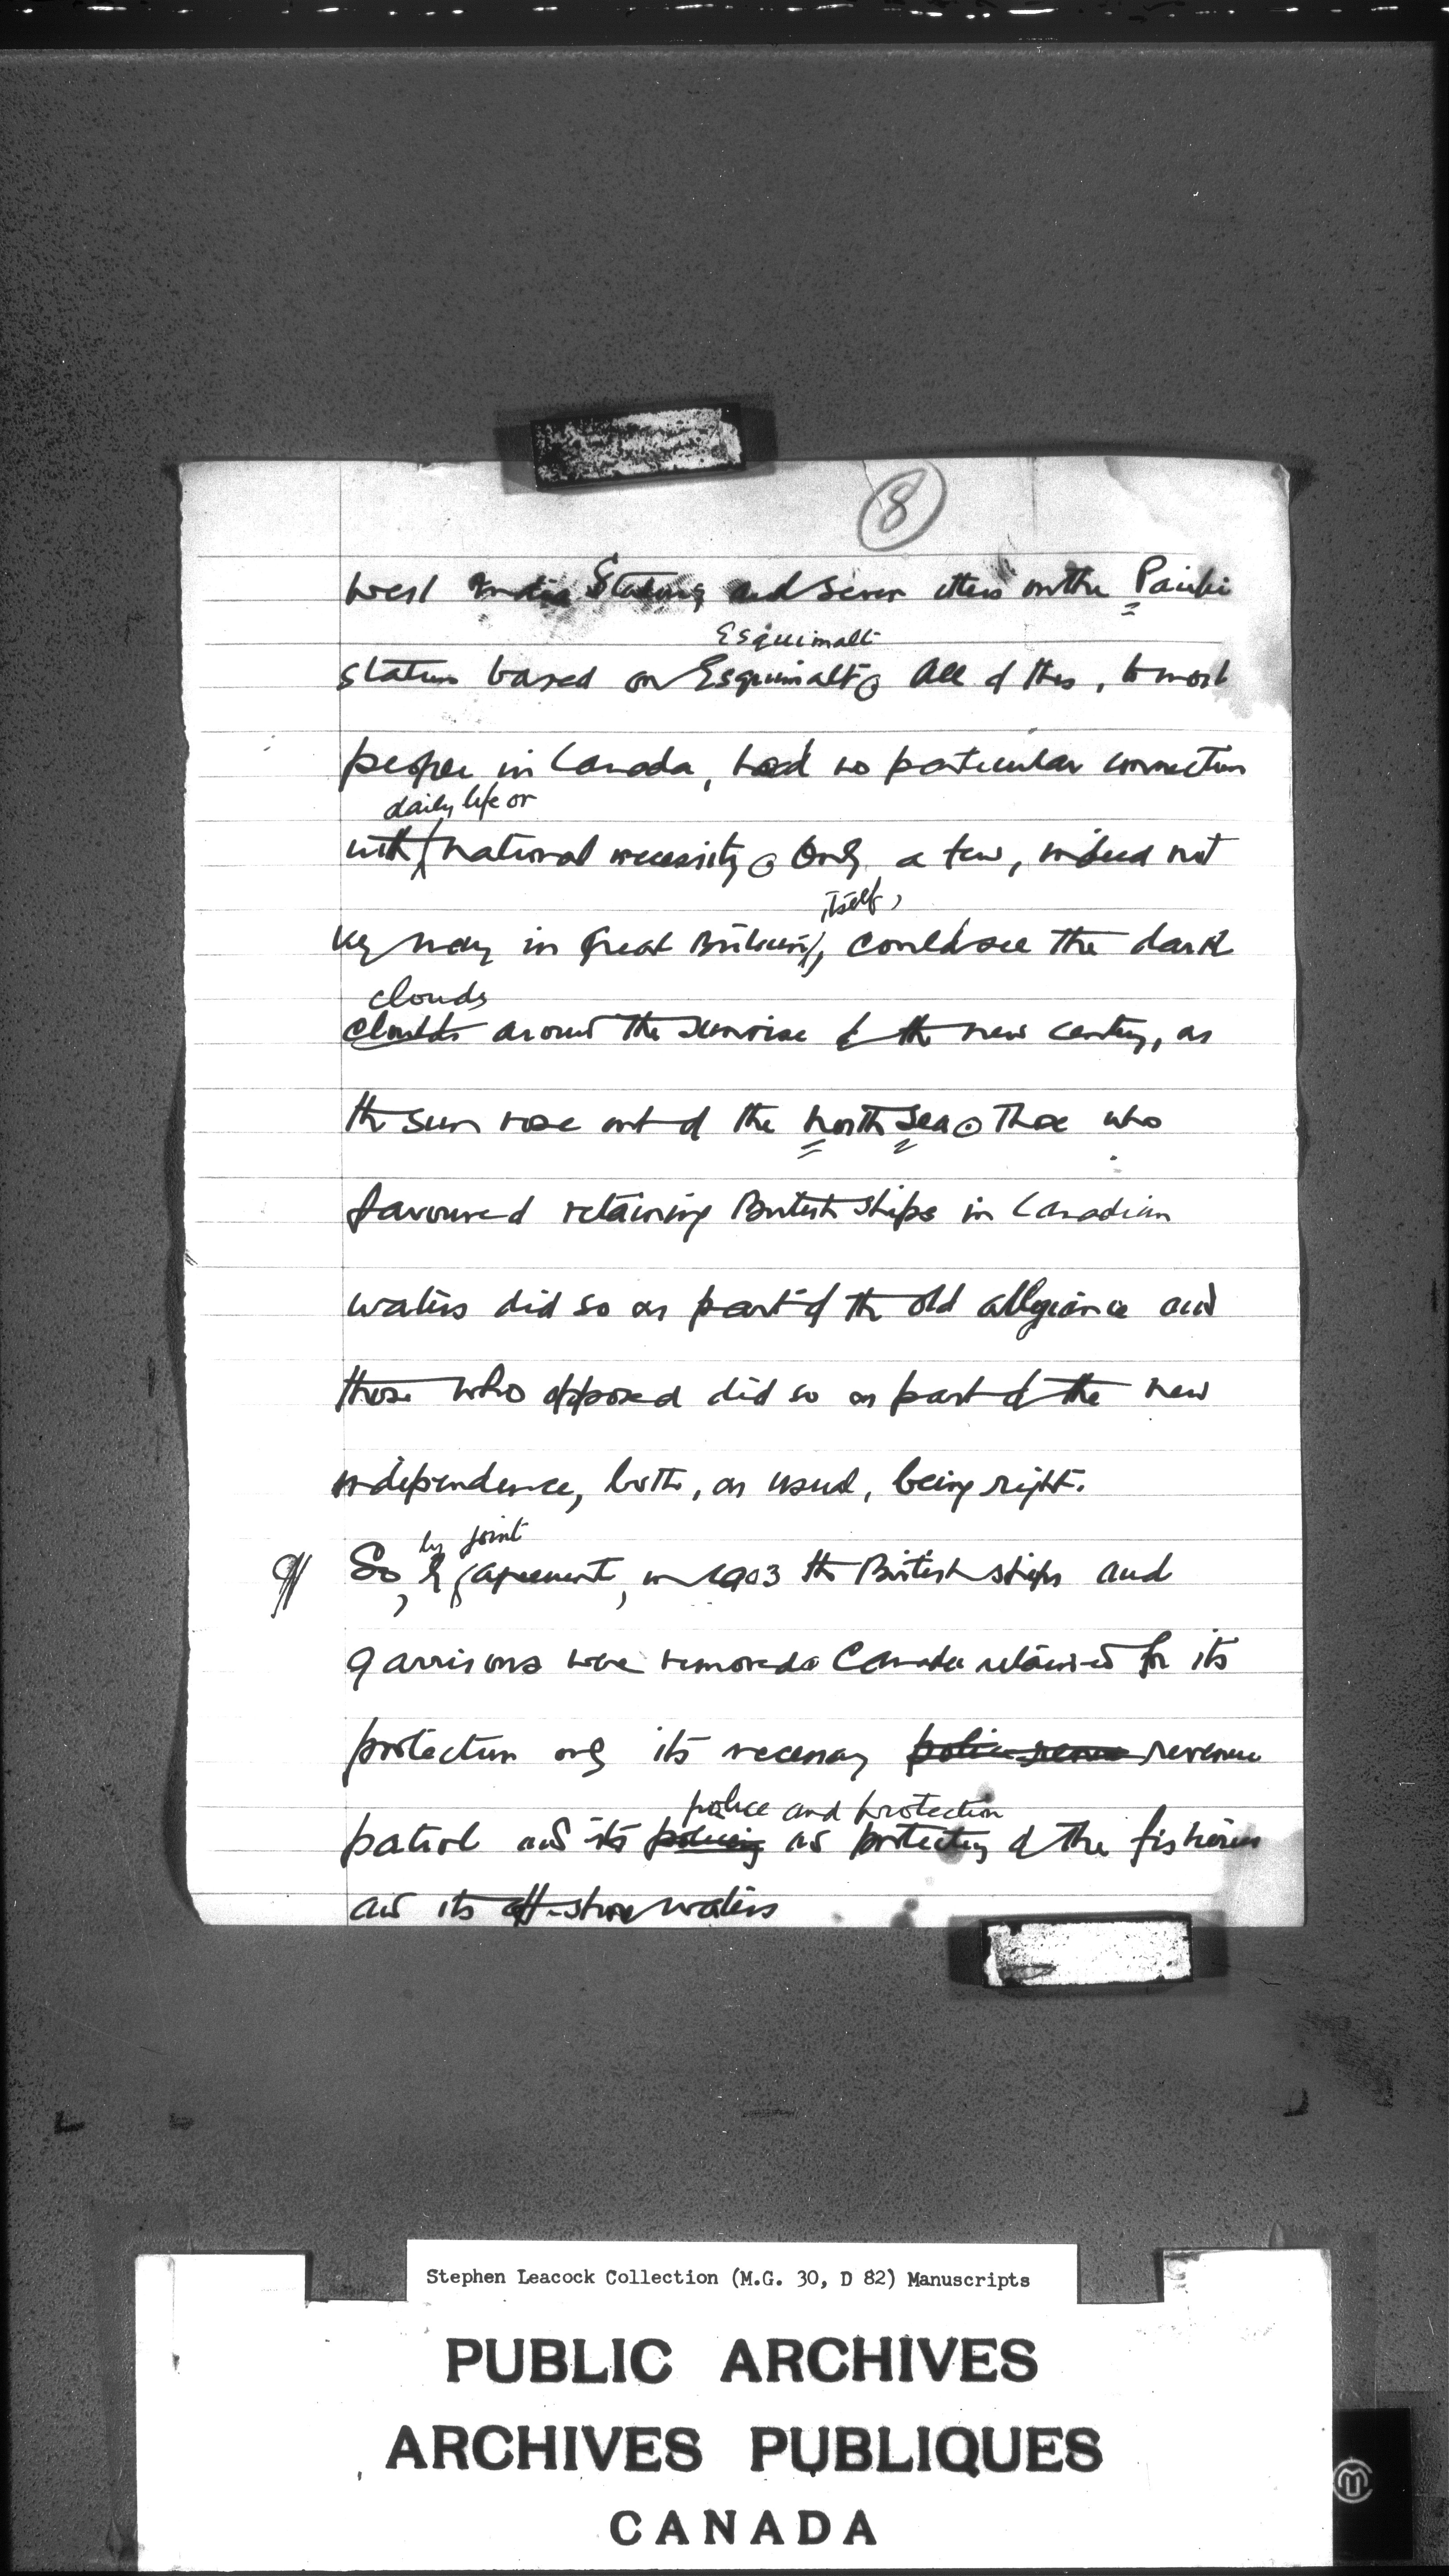 8
West India Station, and seven others on the Pacific
Esquimalt
station based on Esquimalt. All of this, to most
people in Canada, had no particular connection
daily life or
with national necessity. Only a few, indeed not
itself,
very many in Great Britain, could see the dark
clouds
clouds around the sunrise of the new century, as
the sun rose out of the North Sea. Those who
favoured retaining British ships in Canadian
waters did so as part of the old allegiance and
those who opposed did so as part of the new
independence, both, as usual, being right.
by joint
¶ So, by agreement, in 1903 the British ships and
garrisons were removed. Canada retained for its
protection only its necessary police revenue
police and protection
patrol and its policing and protecting of the fisheries
and its off-shore waters
Stephen Leacock Collection (M.G. 30, D 82) Manuscripts
PUBLIC ARCHIVES
ARCHIVES PUBLIQUES
CANADA